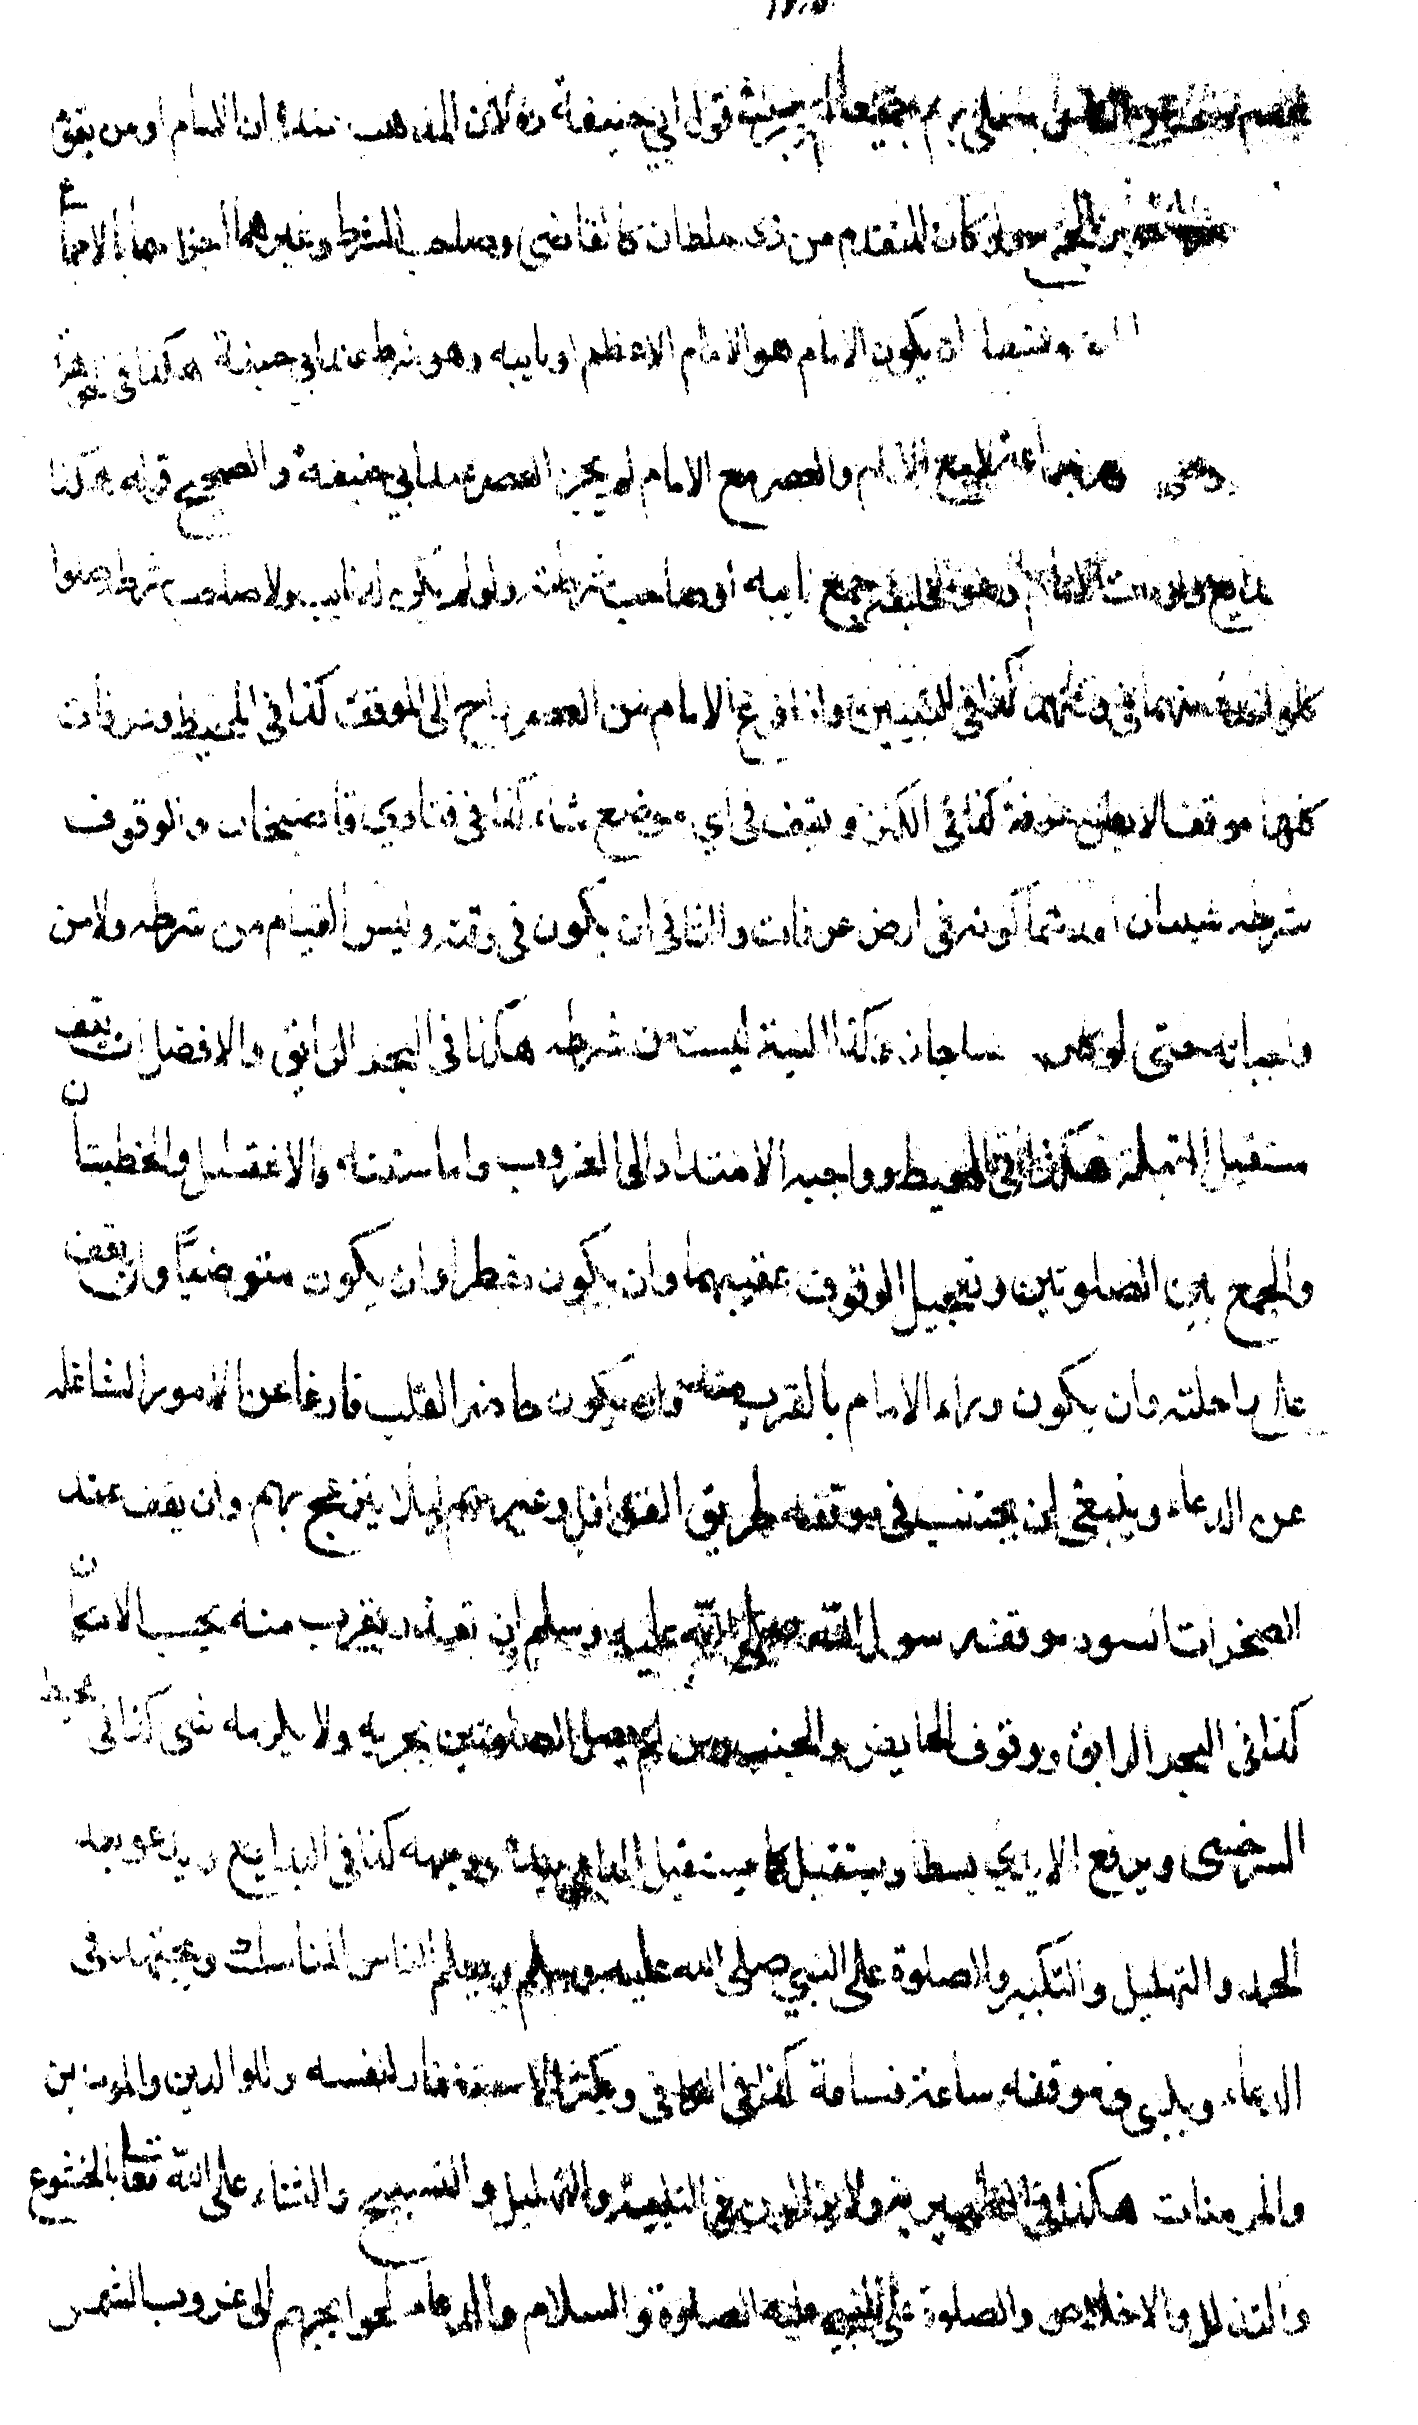 قول ابي حنيفة ره لان المذهب عنده ان الامام او من يقوم
سواء كان المتقدم من ذى سلطان كالقاضي وصاحب الشرط وغيرهما اجزاهما بالاجماع
ان يكون الامام هو الامام الاعظم او نايبه وهو شرط عند ابي حنيفة هكذا فى
مع الامام والعصر مع الامام لم يجز العصر عند ابي حنيفة والصحيح قوله هكذا
الامام وهو الخليفة جمع نايبه او صاحب شرطته ولو لم يكن له نايب ولا صاحب شرط صلوا
كل واحدة منهما فى وقتها كذا فى التبيين واذا فرغ الامام من العصر راح الى الموقف كذا فى المحيط وعرفات
كلها موقف الا بطن عرفة كذا فى الكنز ويقف فى اي موضع شاء كذا فى فتاوي قاضيخان والوقوف
شرطه شيئان احدهما كونه فى ارض عرفات والثانى ان يكون فى وقته وليس القيام من شرطه ولا من
واجباته حتى لو كان جالسا جاز وكذا النية ليست من شرطه هكذا فى البحر الرايق والافضل ان يقف
مستقبل القبلة هكذا فى المحيط وواجبه الامتداد الى الغروب واما سننه فالاغتسال والخطبتان
والجمع بين الصلوتين وتعجيل الوقوف عقيبهما وان يكون مفطرا وان يكون متوضيًا وان يقف
على راحلته وان يكون وراء الامام بالقرب منه وان يكون حاضر القلب فارغا عن الامور الشاغله
عن الدعاء وينبغى ان يجتنب فى موقفه طريق القوافل وغيرهم ليلا ينزعج بهم وان يقف عند
الصخرات السود موقف رسول الله صلى الله عليه وسلم وان تعذر يقرب منه بحسب الامكان
كذا فى البحر الرايق ووقوف الحايض والجنب ومن لم يصل الصلوتين يجزيه ولا يلزمه شى كذا فى محيط
السرخسى ويرفع الايدي بسطا ويستقبل كما يستقبل الداعي بيده ووجهه كذا فى البدايع ويدعو بعد
الحمد والتهليل والتكبير والصلوة على النبي صلى الله عليه وسلم ويعلم الناس المناسك ويجتهد فى
الدعاء ويلبى فى موقفه ساعة فساعة كذا فى الكافى ويكثر الاستغفار لنفسه وللوالدين والمومنين
والمومنات هكذا فى ولا يزالون فى التلبية والتهليل والتسبيح والثناء على الله تعا بالخشوع
والتذلل والاخلاص والصلوة على النبي عليه الصلوة والسلام والدعاء لحوايجهم الى غروب الشمس